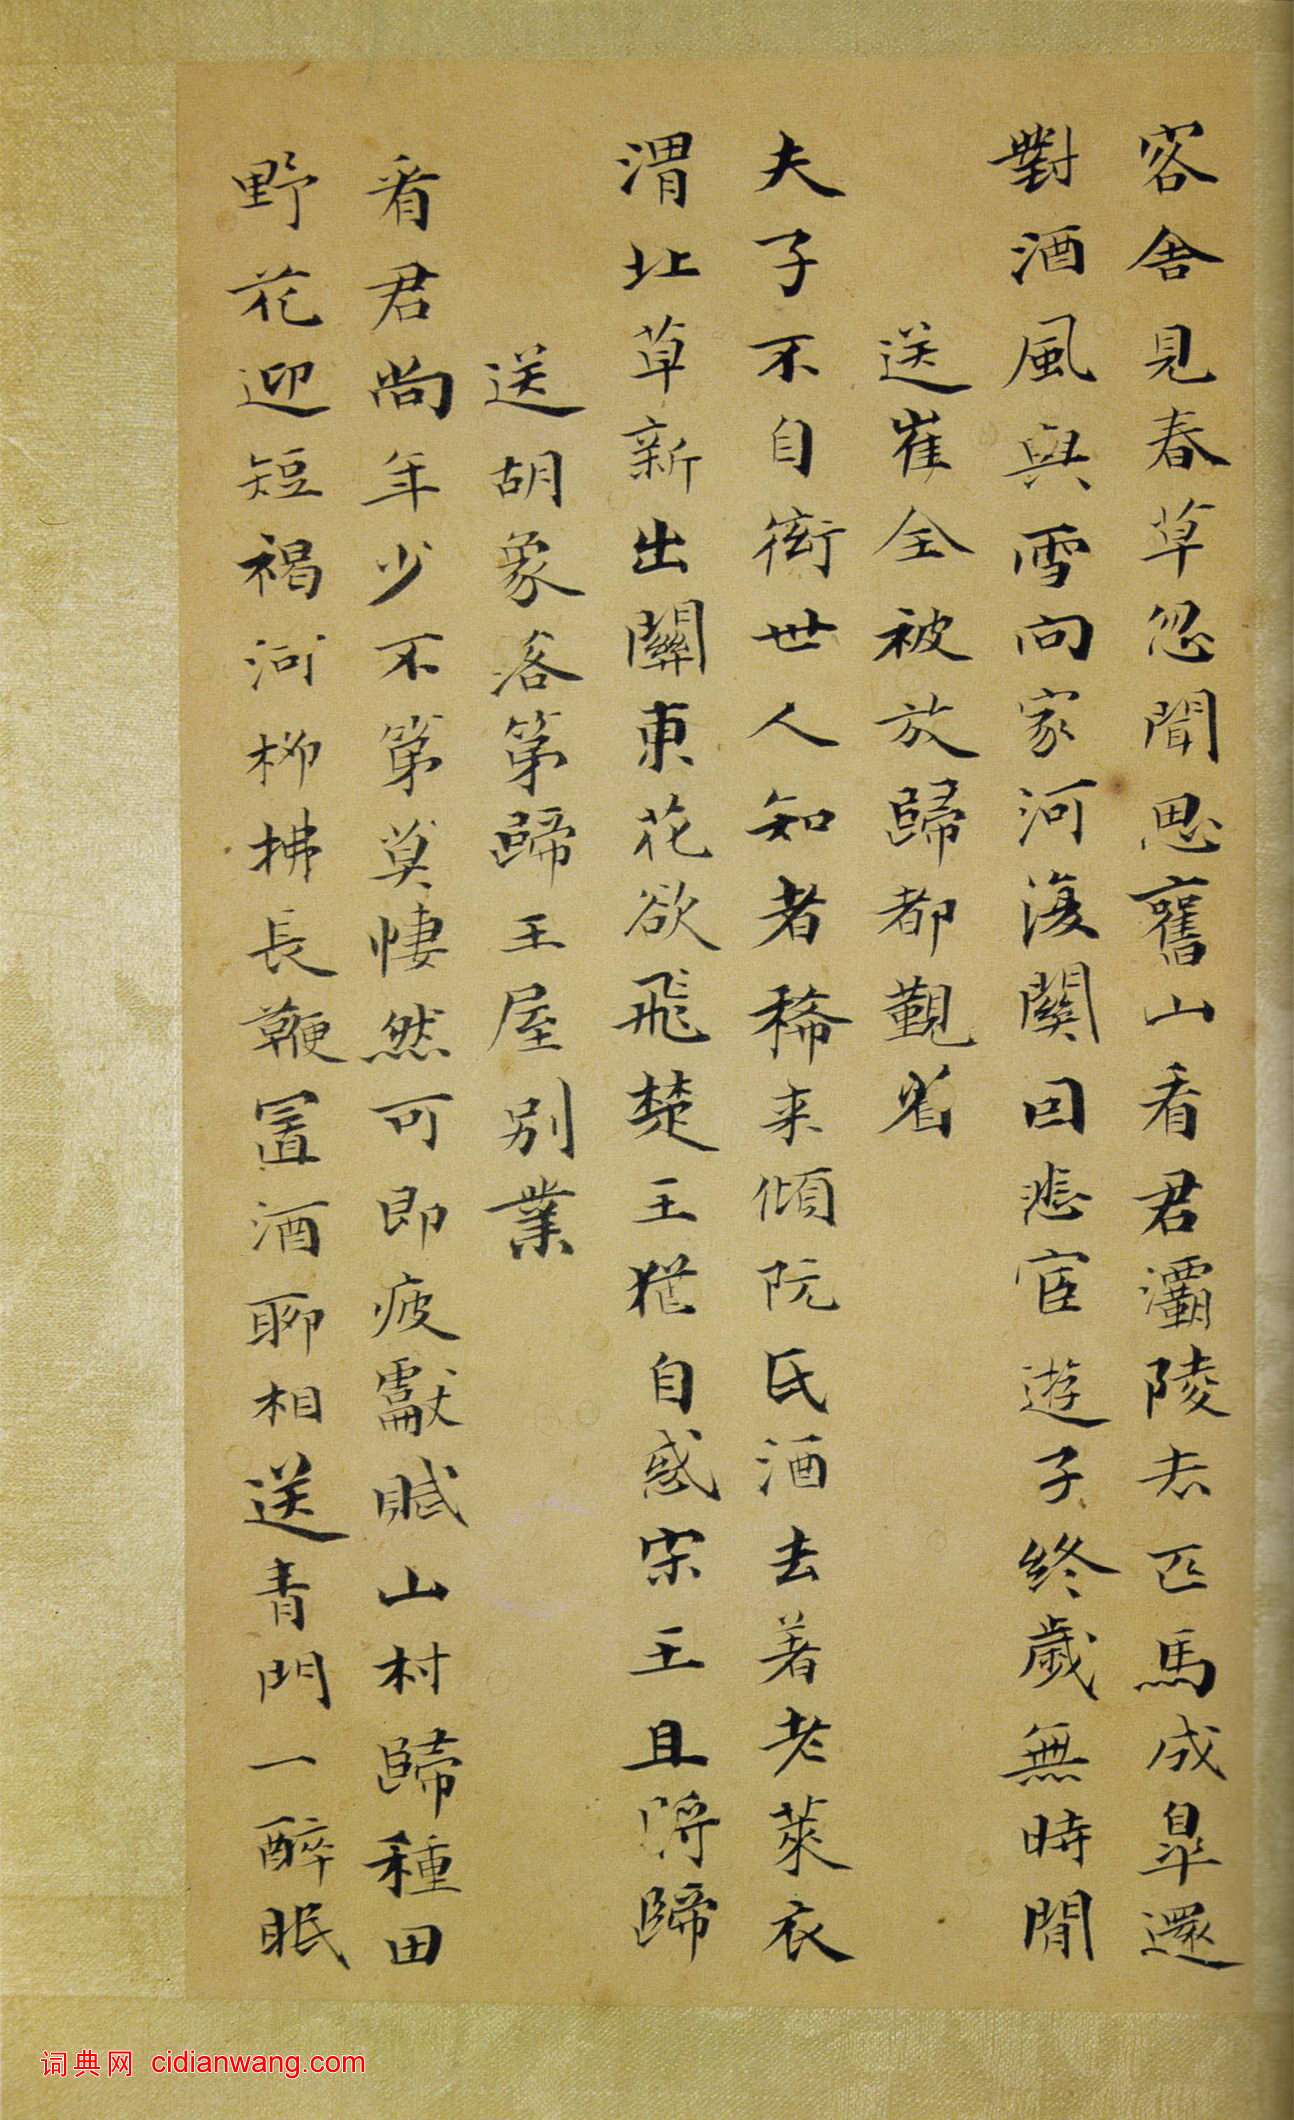 客舍見春草忽聞思舊山看君灞陵去匹馬成皋還
對酒風與雪向家河復關因悲宦遊子終歲無時閒
送崔全被放歸都覲省
夫子不自衒世人知者稀来傾阮氏酒去著老萊衣
渭北草新出關東花欲飛楚王猶自惑宋王且將歸
送胡象落第歸王屋別業
看君尚年少不第莫悽然可即疲獻賦山村歸種田
野花迎短褐河柳拂長鞭置酒聊相送青門一醉眠
词典网 cidianwang.com